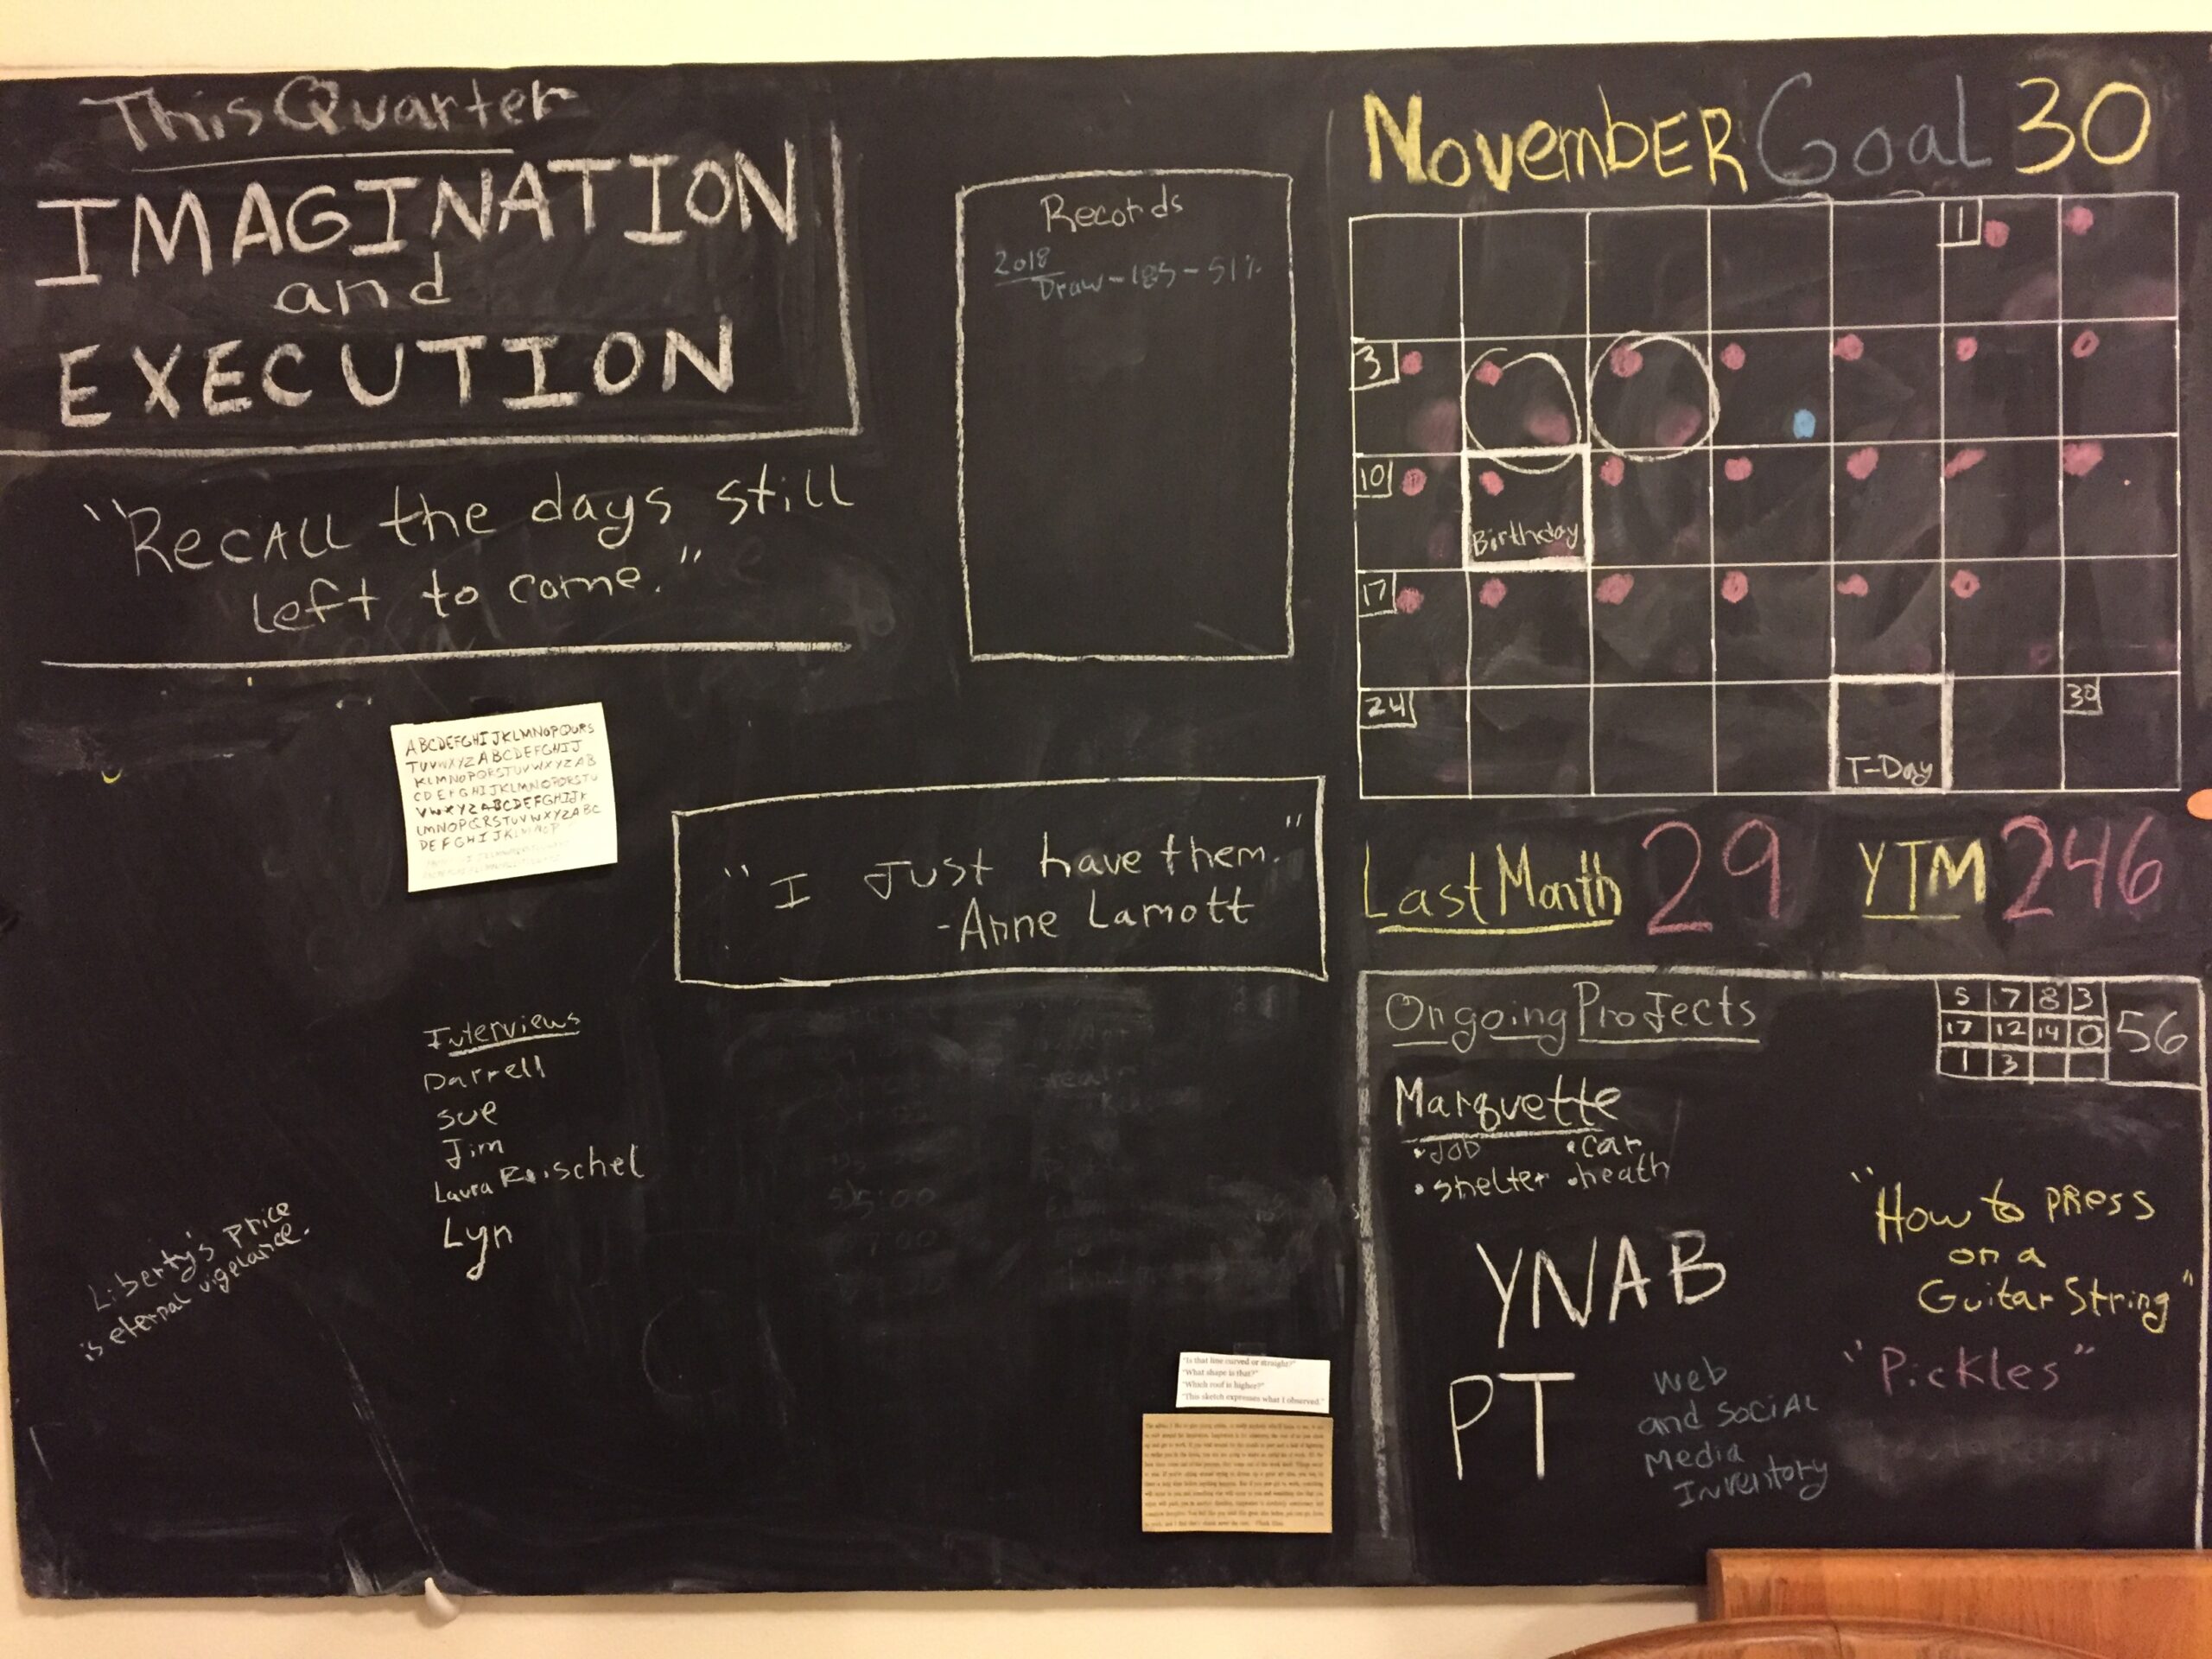 This Quarter
IMAGINATION
and
EXECUTION
"RECALL the days still
left to come."
Records
2018
Draw - 185 - 51%
NovembER Goal 30
1
3
10
Birthday
17
24
30
T-Day
Last Month 29 YTM 246
ABCDEFGHIJKLMNOPQURS
TUVWXYZABCDEFGHIJ
KLMNOPQRSTUVWXYZAB
CDEFGHIJKLMNOPQRSTU
VWXYZABCDEFGHIJK
LMNOPQRSTUVWXYZABC
DEFGHIJKLMNOP
"I JUST have them."
-Anne Lamott
Interviews
Darrell
Sue
Jim
Laura
Lyn
Liberty's price
is eternal vigelance.
"Is that line curved or straight?"
"What shape is that?"
"Which roof is higher?"
"This sketch expresses what I observed."
Ongoing Projects
5 7 8 3
17 12 14 0
1 3
56
Marquette
• JOB • car
• shelter • heath
YNAB
PT
web
and SOCIAL
Media
Inventory
"How to press
on a
Guitar String"
"Pickles"